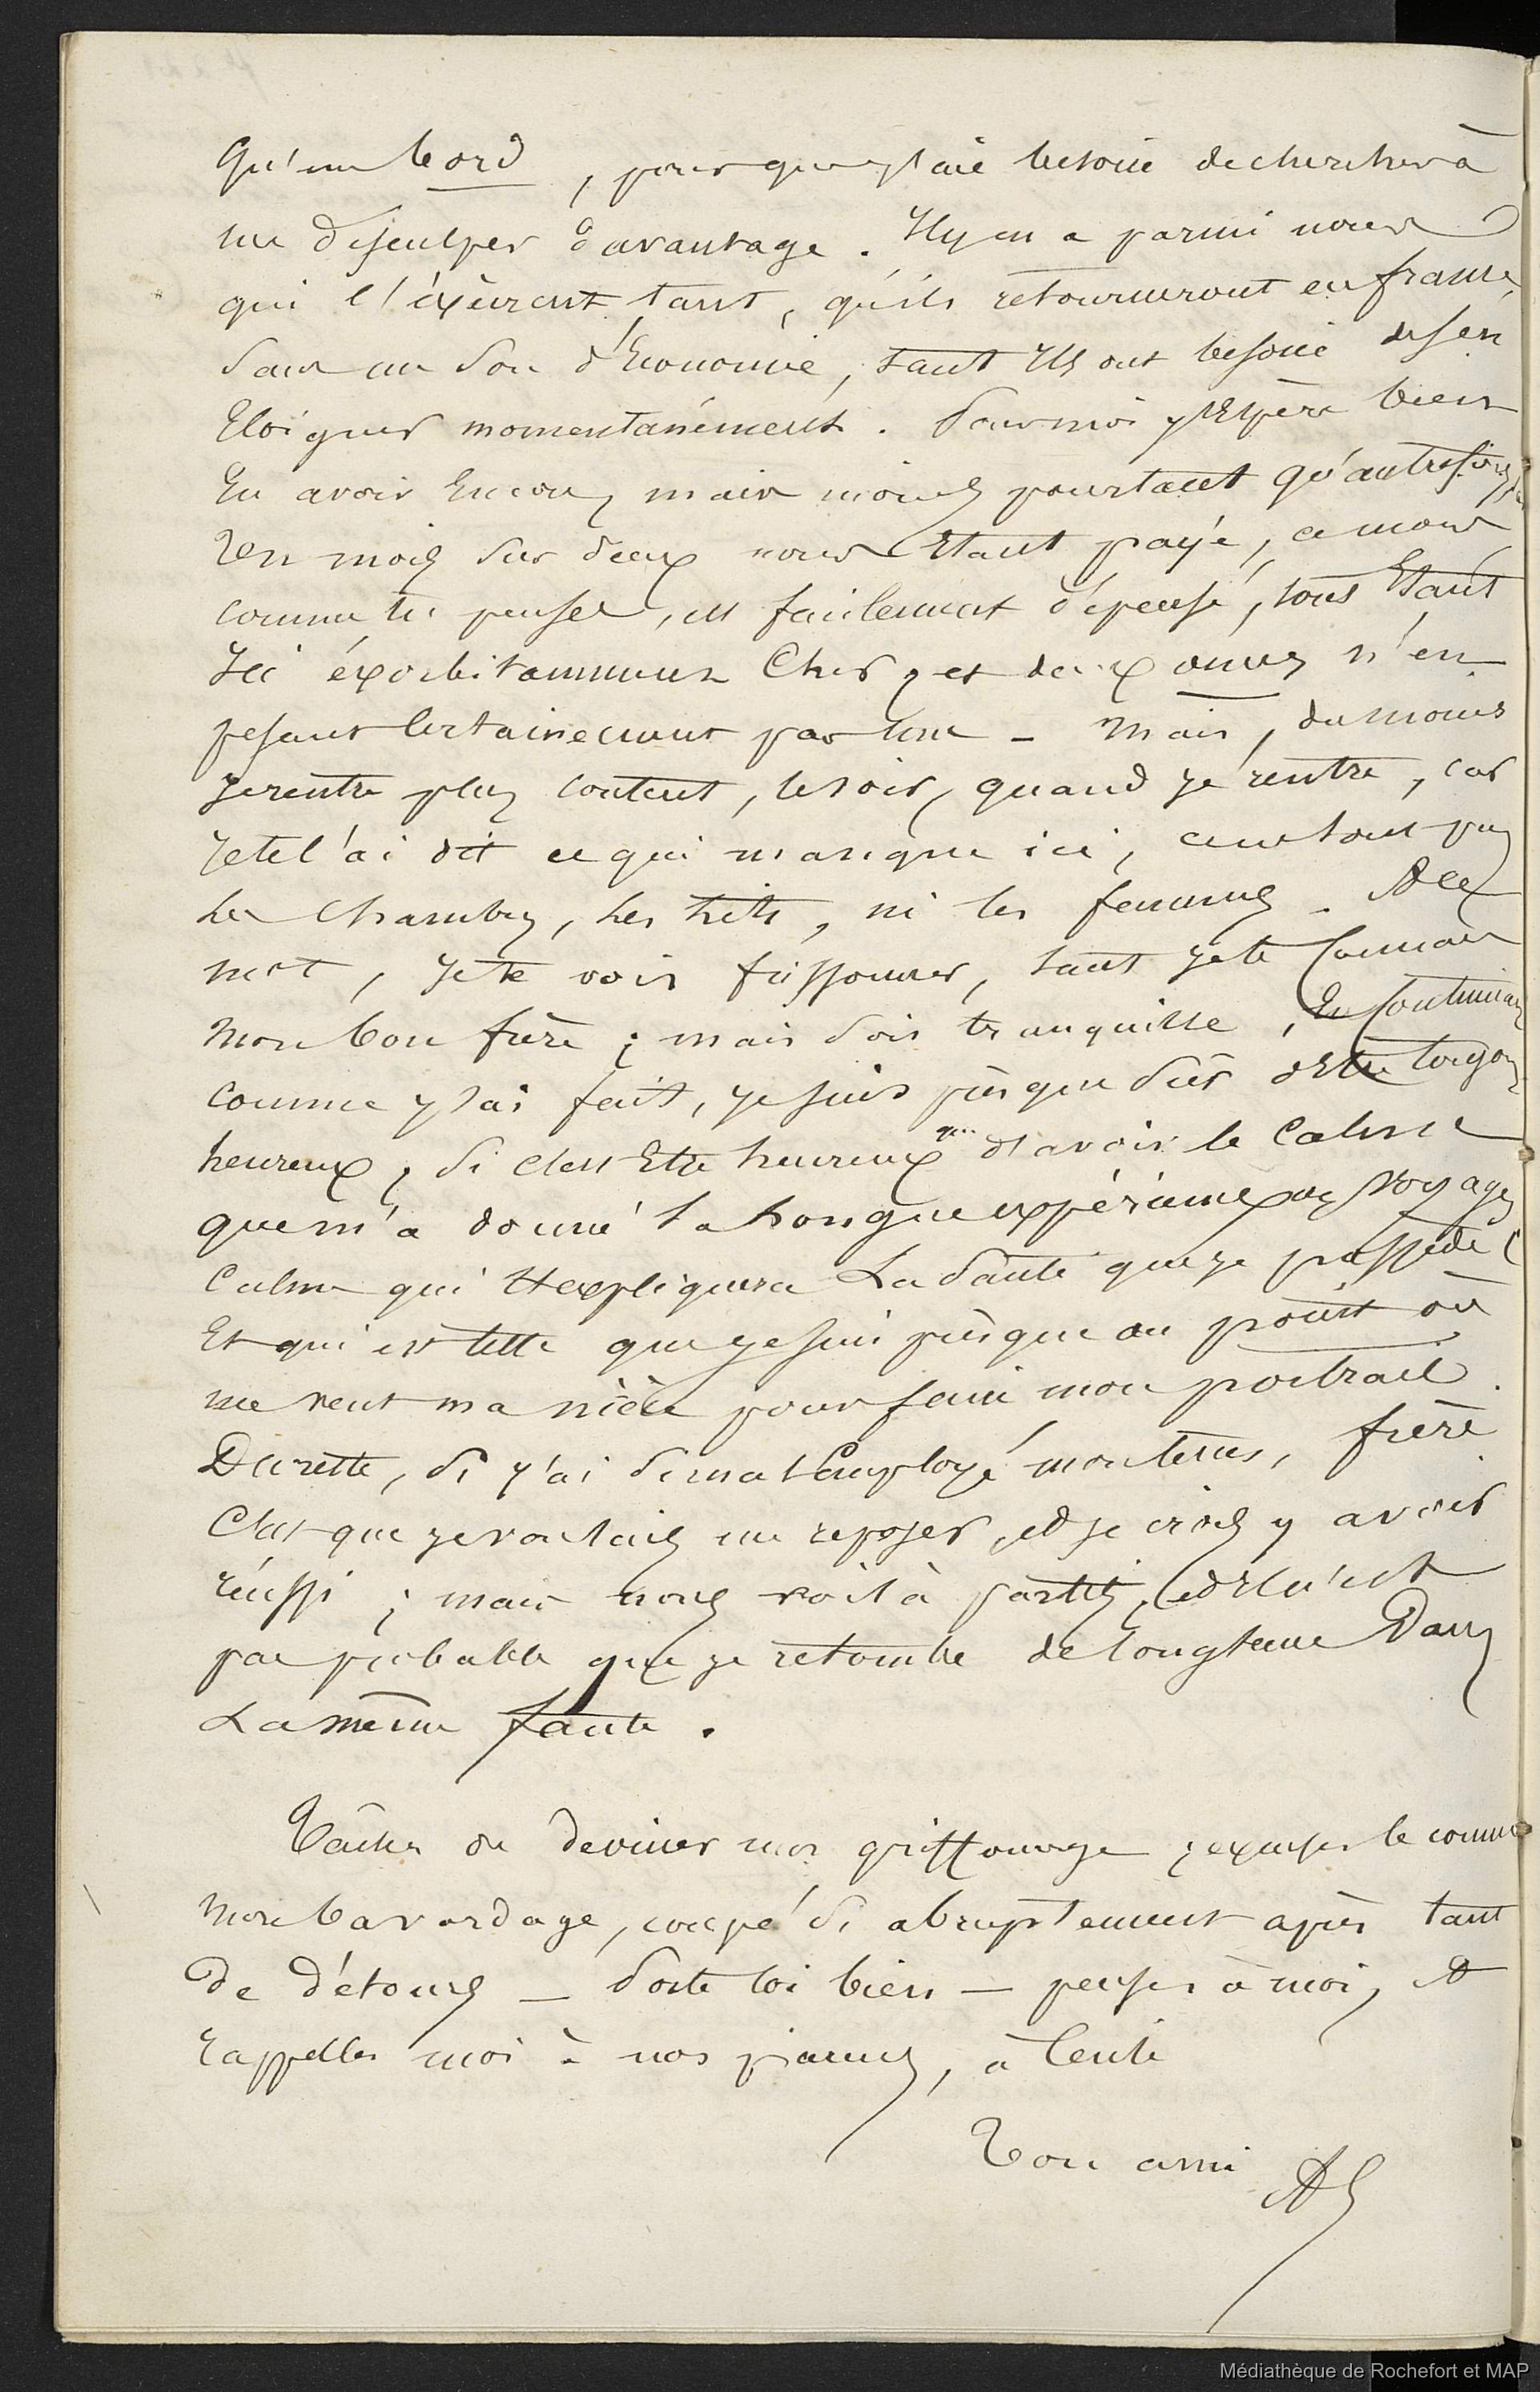 Qu'un bord, pour que j'aie besoin de chercher à
me disculper davantage. Il y en a parmi nous
qui l'éxècrent tant, qu'ils retourneront en france,
sans un sou d'Economie, tant Ils ont besoin de s'en
Eloigner momentanément. Pour moi j'Espère bien
En avoir Encore, mais moins pourtant qu'autrefois,
Un mois sur deux nous Etant payé, ce mois
comme tu penses, est facilement dépensé, tout Etant
Ici éxorbitamment Cher, et deux onces n'en
pesant certainement pas une - Mais, du moins
Je rentre plus content, le soir, quand je rentre, car
Je te l'ai dit ce qui manque ici, ce ne sont pas
les chambres, les lits, ni les femmes. A ce
mot, Je te vois frissonner, tant Je te Connais
Mon bon frère ; mais sois tranquille, En Continuant
comme j'ai fait, je suis presque sûr d'Etre toujours
heureux, si c'est Etre heureux que d'avoir le Calme
que m'a donné la longue expérience des voyages
Calme qui t'expliquera La Santé que je possède
Et qui est telle que je suis presque au point où
me veut ma nièce pour faire mon portrait.
Du reste, si j'ai si mal Employé mon tems, frère
C'est que je voulais me reposer, et je crois y avoir
réussi ; mais nous voilà partis, et il n'est
pas probable que je retombe de longtems Dans
La même faute.
Tâches de deviner mon griffonage, excuses le comme
Mon bavardage, coupé si abruptement après tant
De détours — Porte toi bien — penses à moi, et
rappelles moi à nos parens, à
Ton ami